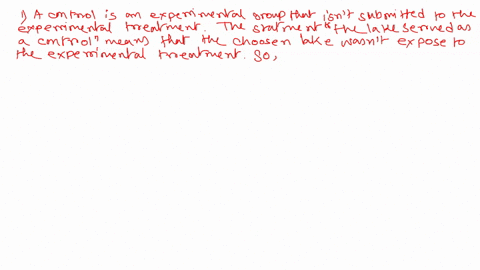 1) A control is an experimental group that isn't submitted to the
experimental treatment. The statment "the lake served as
a control" means that the choosen lake wasn't expose to
the experimental treatment. So,